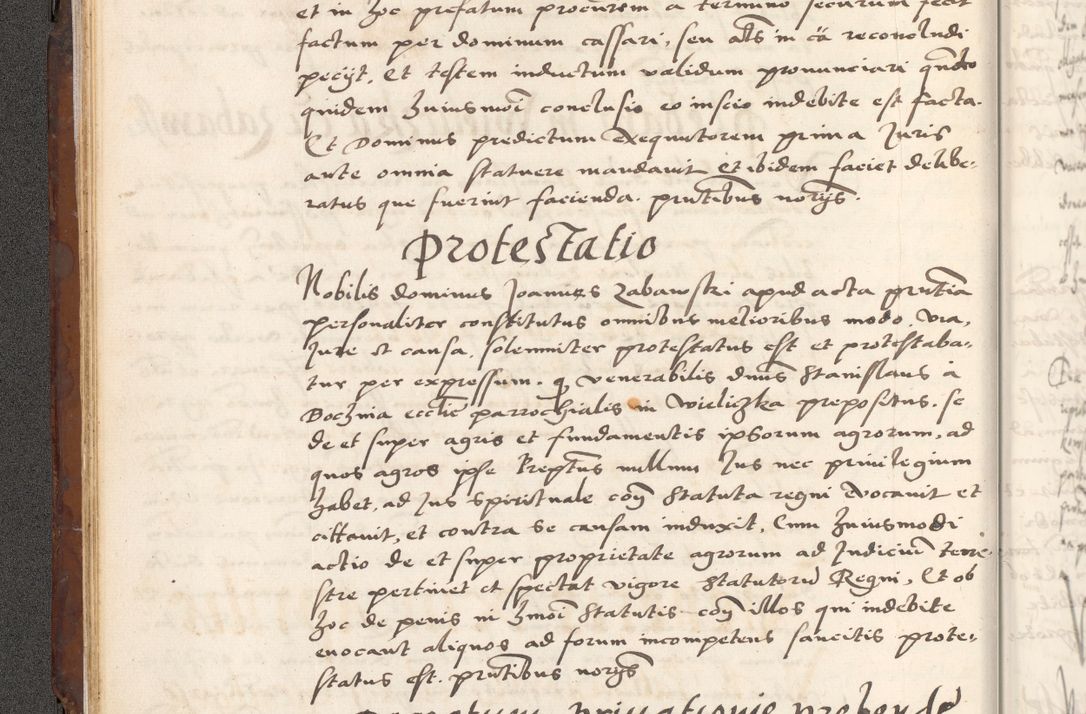 et in hoc prefatum procurem a termino securum fecit
factum per dominum cassari, seu als in cā reconcludi
pecijt, Et testem inductum validum pronunciari qndo
quidem huiusmoi conclusio eo inscio indebite est facta.
Et Dominus predictum Exequutorem prima Juris
ante omnia statuere mandauit Et ibidem faciet delibe-
ratus que fuerint facienda. pntibus norijs.
Protestatio
Nobilis dominus Joannes Zabawski apud acta pntia
personaliter constitutus omnibus melioribus modo, via,
Jure et causa, solemniter protestatus est et protestaba-
tur per expressum. q venerabilis dnus Stanislaus à
Bochnia ecclie parrochialis in Wieliczka prepositus. se
de et super agris et fundamentis ipsorum agrorum, ad
quos agros ipse Preptus nullum Jus nec priuilegium
habet, ad Jus Spirituale con Statuta regni Euocauit et
cittauit, et contra se causam induxit. Cum huiusmodi
actio de et super proprietate agrorum ad Judiciū terre-
stre pertinet et spectat vigore Statutorū Regni, Et ob
hoc de penis in hmoi Statutis con illos qui indebite
euocant aliquos ad forum incompetens sancitis prote-
status est. pntibus norijs
priuationis prebende